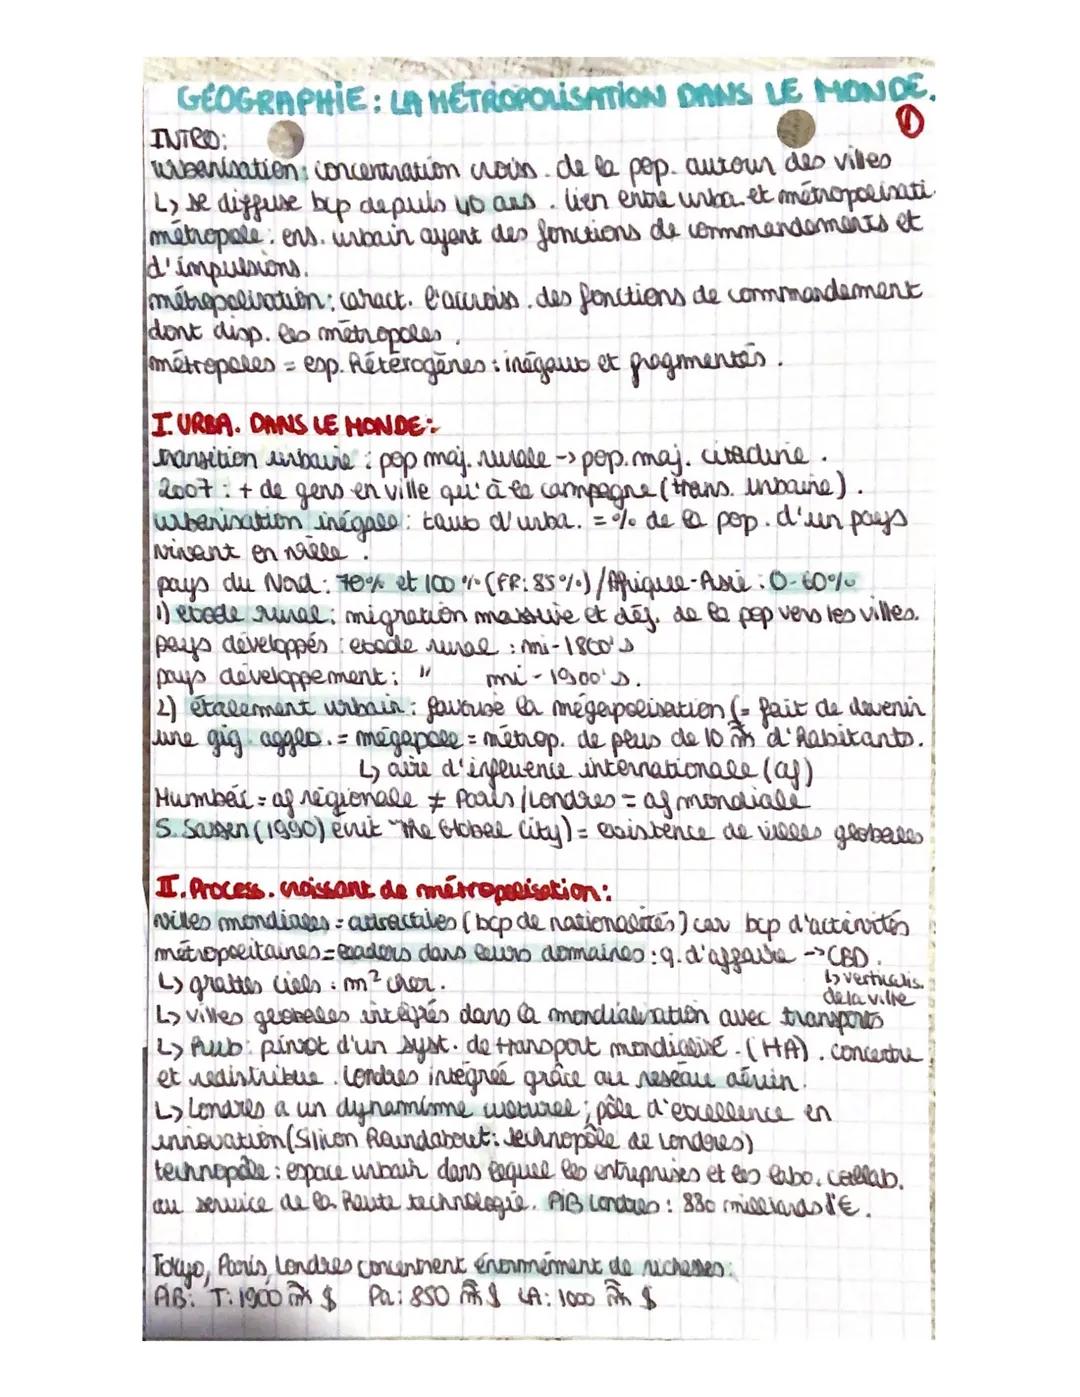 GÉOGRAPHIE : LA MÉTROPOLISATION DANS LE MONDE.
1
INTRO:
urbanisation: concentration croiss. de la pop. autour des villes
↳ se diffuse bcp depuis 40 ans. lien entre urba. et métropolisati.
métropole. ens. urbain ayant des fonctions de commmandements et
d'impulsions.
métropolisation: caract. l'accroiss. des fonctions de commmandement
dont disp. les métropoles.
métropoles = esp. hétérogènes : inégaux et fragmentés.
I. URBA. DANS LE MONDE:
transition urbaine : pop maj. rurale -> pop. maj. citadine.
2007 : + de gens en ville qu'à la campagne (trans. urbaine).
urbanisation inégale : taux d'urba. = % de la pop. d'un pays
vivant en ville.
pays du Nord : 70% et 100 % (FR: 85%) / Afrique-Asie : 0-60%
1) exode rural : migration massive et dép. de la pop vers les villes.
pays développés : exode rural : mi-1800's
pays développement : " mi-1900's.
2) étalement urbain : favorise la mégapolisation (= fait de devenir
une gig. agglo. = mégapole = métrop. de plus de 10 m d'habitants.
↳ aire d'influence internationale (af)
= af régionale ≠ Paris/Londres = af mondiale
S. Sassen (1990) écrit "The Global City) = existence de villes globales
II. Process. croissant de métropolisation :
villes mondiales = attractiles (bcp de nationalités) car bcp d'activités
métropolitaines = leaders dans leurs domaines : q. d'affaire -> CBD.
↳ verticalis.
de la ville
↳ grattes ciels : m² cher.
↳ villes globales intégrés dans la mondialisation avec transports
↳ Hub : pivot d'un syst. de transport mondialisé. (HA). concentre
et redistribue. Londres intégrée grâce au réseau aérien.
↳ Londres a un dynamisme culturel ; pôle d'excellence en
innovation (Silicon Roundabout : technopôle de Londres)
technopôle : espace urbain dans lequel les entreprises et les labo. collab.
au service de la haute technologie. PIB Londres : 830 milliards d'€.
Tokyo, Paris, Londres concentrent énormément de richesses:
PIB: T: 1900 $ Pa: 850 $ LA: 1000 $